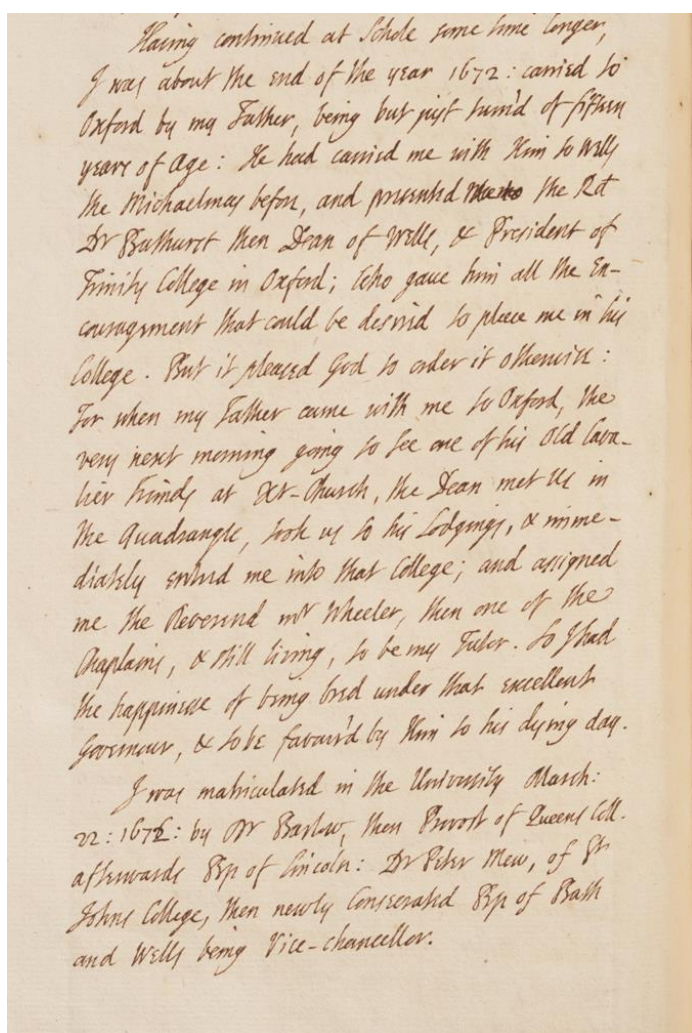 Having continued at Schole some time longer,
I was about the end of the year 1672: carried to
Oxford by my Father, being but just turn'd of fifteen
years of Age: He had carried me with Him to Wells
the Michaelmas before, and presented me to the Rd
Dr Bathurst then Dean of Wells, & President of
Trinity College in Oxford; who gave him all the En-
couragement that could be desired to place me in his
College. But it pleased God to order it otherwise:
For when my Father came with me to Oxford, the
very next morning going to see one of his Old Cava-
lier Friends at Xt-Church, the Dean met Us in
the Quadrangle, took us to his Lodgings, & imme-
diately entred me into that College; and assigned
me the Reverend mr Wheeler, then one of the
Chaplains, & still living, to be my Tutor. So I had
the happinesse of being bred under that excellent
Governour, & to be favour'd by Him to his dying day.
I was matriculated in the University March:
22: 167 : by Dr Barlow, then Provost of Queens Coll.
afterwards Bp of Lincoln: Dr Peter Mew, of St
Johns College, then newly Consecrated Bp of Bath
and Wells being Vice-chancellor.